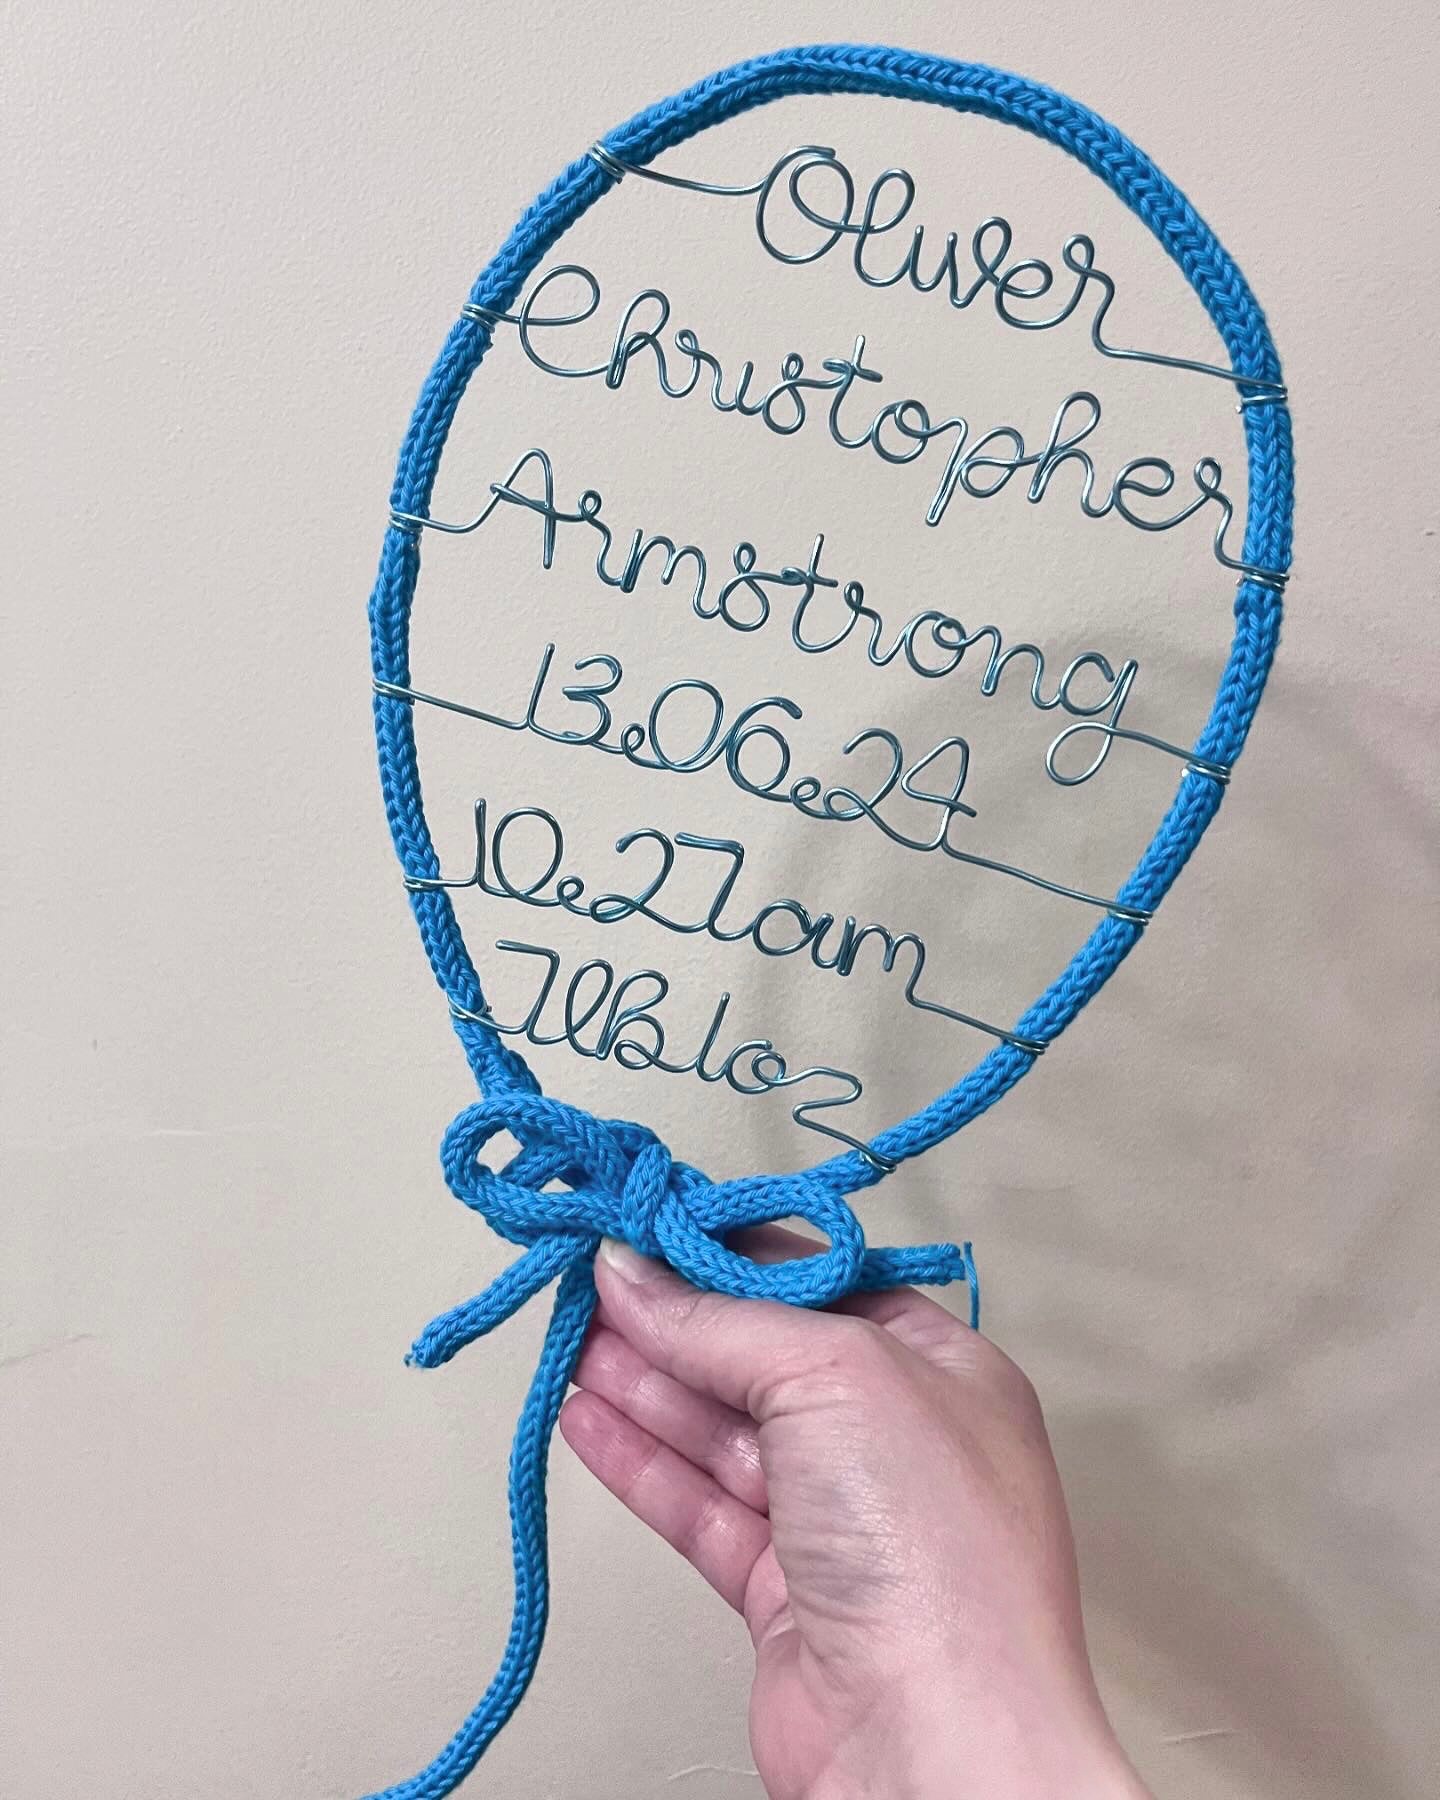 Oliver
Christopher
Armstrong
13.06.24
10.27am
7lb 1oz